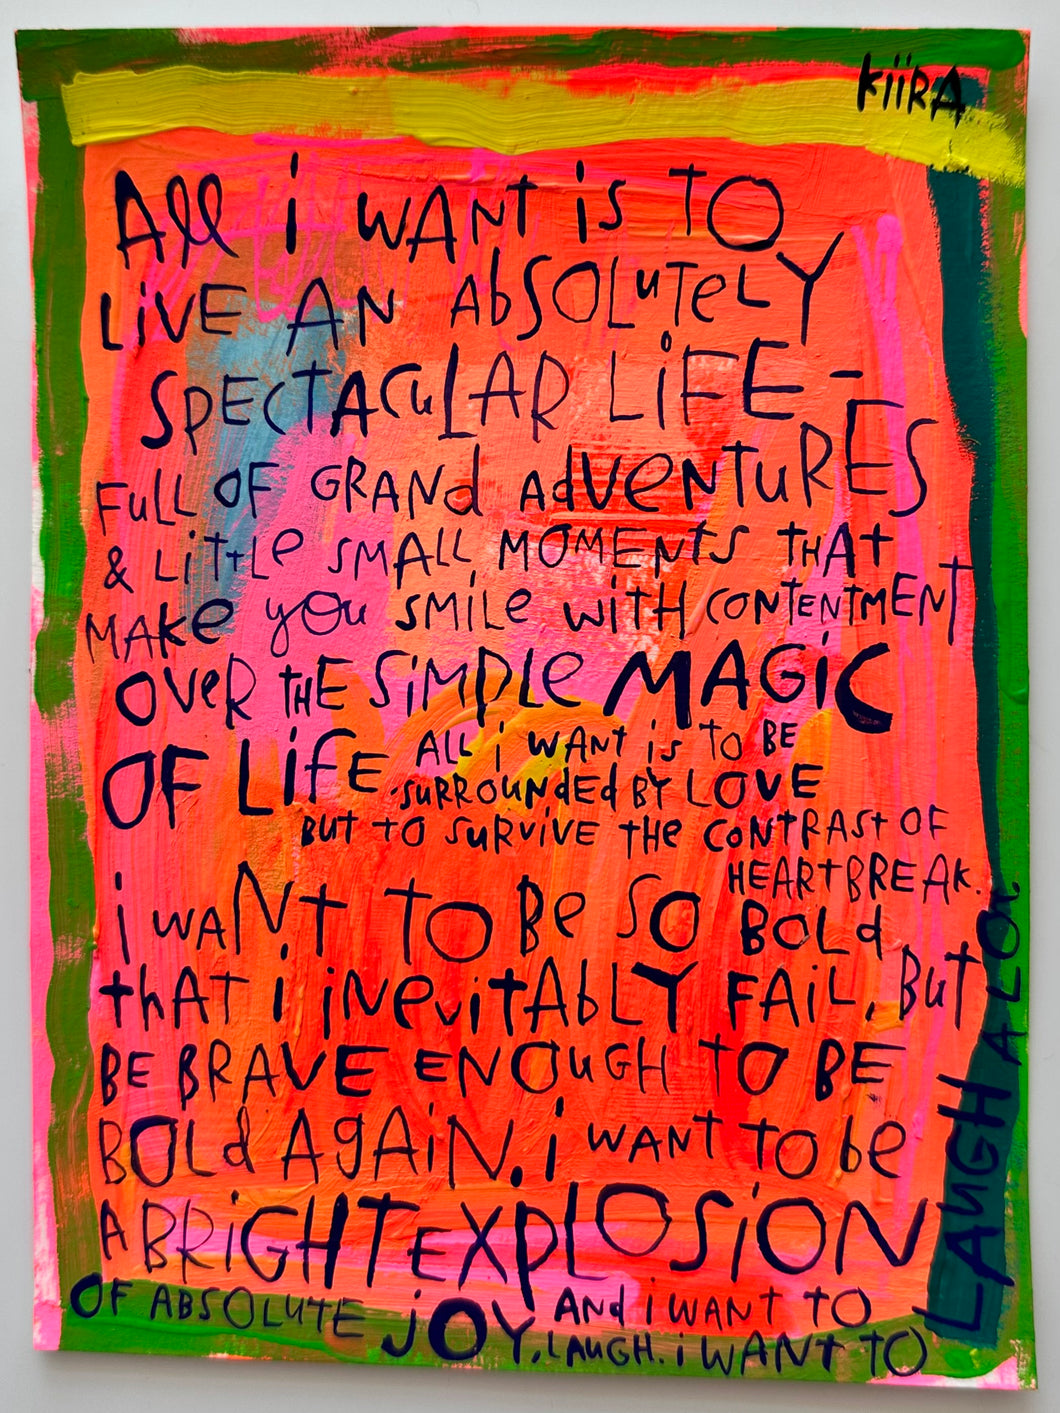 kiiRA
All i wANt is TO
LiVE AN AbSOLuTeLY
SPECTACuLAR LiFE -
FuLL OF GRANd AdVeNTuRES
& LiTtLe SMALL MOMENtS tHAt
MAKe yOu SMiLe WiTH CONTENTMENT
OVeR tHE SiMPLe MAGiC
OF LiFE ALL i WANt is TO BE
SuRROuNdEd BY LOVE
BuT tO SuRViVE tHe CONTRASt OF
HEARtBREAK.
i wANt TO Be SO BOLd
thAT i iNeVitAbLY FAiL, BuT
BE BRAVE ENOuGH TO BE
BOLd AgAiN. i WANT TO be
A BRiGHT EXPLOSiON
OF ABSOLuTE jOY, ANd i WANT TO
LAuGH. i WANt TO
LAuGH A LOt